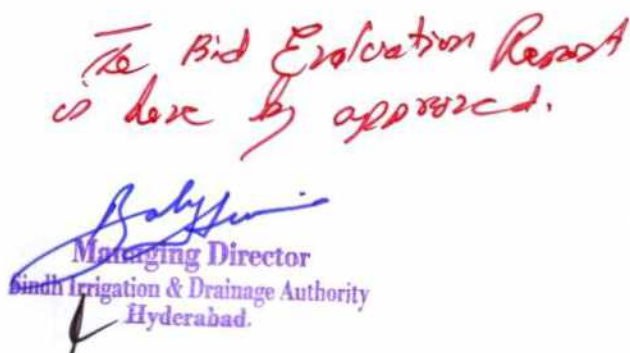 The Bid Evaluation Report
is here by approved.
Managing Director
Sindh Irrigation & Drainage Authority
Hyderabad.